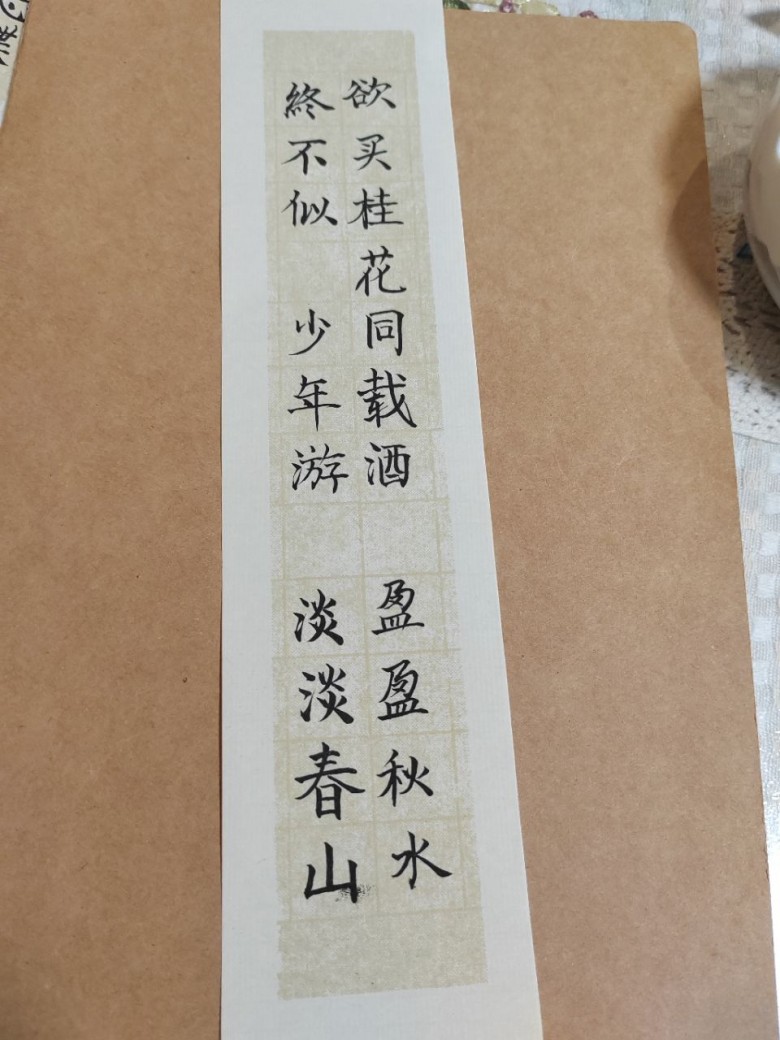 欲买桂花同载酒 盈盈秋水
終不似 少年游 淡淡春山